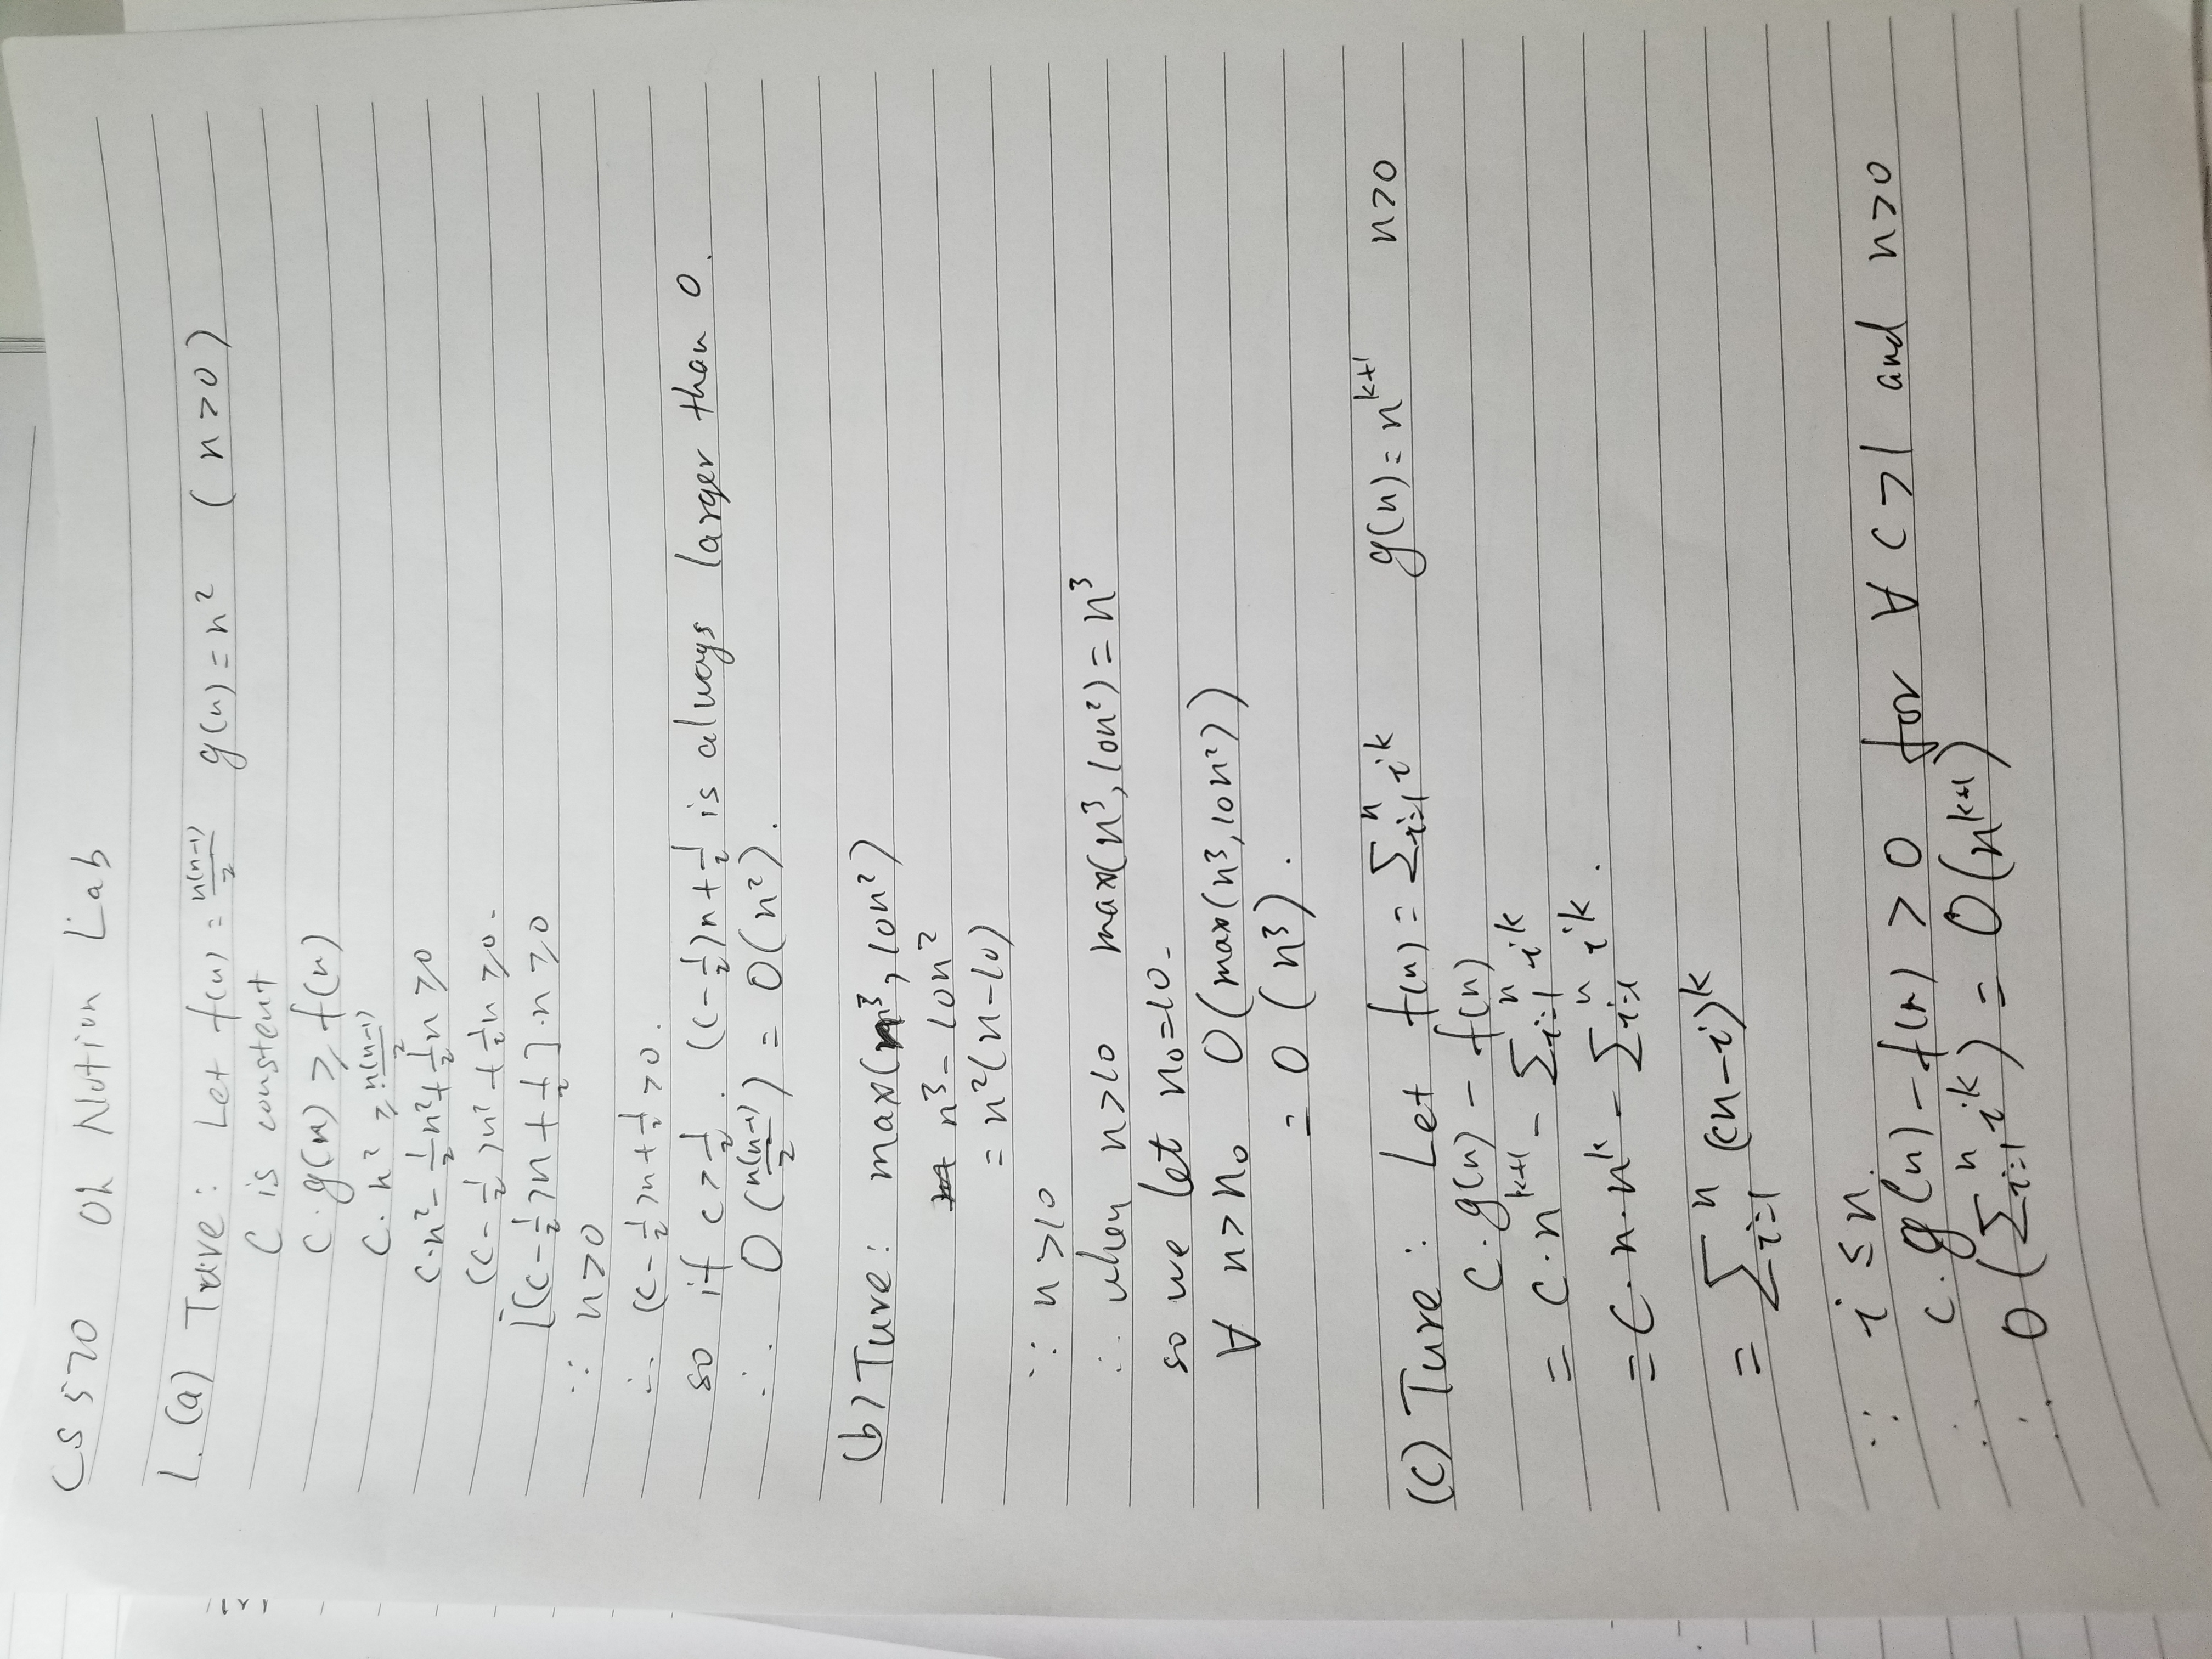 CS 570 Oh Notion Lab
1. (a) Trave: Let f(n) = n(n-1)/2 g(n) = n² (n>0)
C is constent
C·g(n) ≥ f(n)
C·n² ≥ n(n-1)/2
C·n² - 1/2 n² + 1/2 n ≥ 0
(C - 1/2)n² + 1/2 n ≥ 0.
[(C - 1/2)n + 1/2]·n ≥ 0
∵ n>0
∴ (C - 1/2)n + 1/2 > 0.
so if c > 1/2. (C - 1/2)n + 1/2 is always larger than 0.
∴ O(n(n-1)/2) = O(n²).
(b) Ture: max(n³, 10n²)
n³ - 10n²
= n²(n-10)
∵ n>10
∴ when n>10 max(n³, 10n²) = n³
so we let n₀=10.
∀ n>n₀ O(max(n³, 10n²))
= O(n³).
(C) Ture: Let f(n) = Σᵢ₌₁ⁿ iᵏ g(n) = nᵏ⁺¹ n>0
C·g(n) - f(n)
= C·nᵏ⁺¹ - Σᵢ₌₁ⁿ iᵏ
= C·n·nᵏ - Σᵢ₌₁ⁿ iᵏ.
= Σᵢ₌₁ⁿ (cn-i)ᵏ
∵ i ≤ n.
∴ C·g(n) - f(n) > 0 for ∀ C>1 and n>0
∴ O(Σᵢ₌₁ⁿ iᵏ) = O(nᵏ⁺¹)